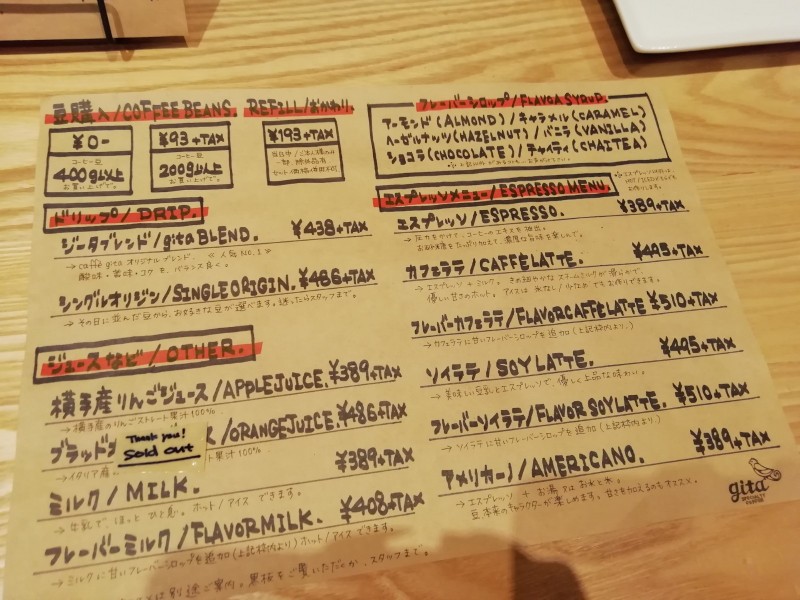 豆購入/COFFEE BEANS. REFILL/おかわり.
¥0-
コーヒー豆
400g以上
お買い上げで。
¥93+TAX
コーヒー豆
200g以上
お買い上げで。
¥193+TAX
ドリップ/DRIP.
ジータブレンド/gita BLEND. ¥438+TAX
→ caffé gita オリジナルブレンド. 《人気 NO.1》
酸味・苦味・コク も、バランス良く。
シングルオリジン/SINGLE ORIGIN. ¥486+TAX
→ その日に並んだ豆から、お好きな豆が選べます。迷ったらスタッフまで。
ジュースなど/OTHER.
横手産りんごジュース/APPLE JUICE. ¥389+TAX
→ 横手産のりんごストレート果汁100%
ブラッド /ORANGE JUICE. ¥486+TAX
Thank you!
Sold out
→イタリア産. 果汁100%
ミルク/MILK. ¥389+TAX
→ 牛乳で、ほっと ひと息。ホット/アイス できます。
フレーバーミルク/FLAVOR MILK. ¥408+TAX
→ ミルクに甘いフレーバーシロップを追加(上記枠内より)ホット/アイス できます。
は別途ご案内。黒板をご覧いただのか、スタッフまで。
フレーバーシロップ/FLAVOR SYRUP.
アーモンド(ALMOND)/キャラメル(CARAMEL)
ヘーゼルナッツ(HAZELNUT)/バニラ(VANILLA)
ショコラ(CHOCOLATE)/チャイティ(CHAITEA)
エスプレッソメニュー/ESPRESSO MENU.
エスプレッソ/ESPRESSO. ¥389+TAX
→ 圧力をかけて、コーヒーのエキスを抽出。
お砂糖をたっぷり加えて、濃厚な旨味を楽しんで。
カフェラテ/CAFFÉLATTE. ¥495+TAX
→ エスプレッソ + ミルク。きめ細やかなスチームミルクが滑らかで、
優しい甘さのホット。アイスは氷なし/少なめでもお作りできます。
フレーバーカフェラテ/FLAVOR CAFFÉLATTE ¥510+TAX
→ カフェラテに甘いフレーバーシロップを追加(上記枠内より.)
ソイラテ/SOY LATTE. ¥495+TAX
→ 美味しい豆乳とエスプレッソで、優しく上品な味わい。
フレーバーソイラテ/FLAVOR SOYLATTE. ¥510+TAX
→ ソイラテに甘いフレーバーシロップを追加(上記枠内より)
アメリカーノ/AMERICANO. ¥389+TAX
→ エスプレッソ + お湯 または お水と氷。
豆本来のキャラクターが楽しめます。甘さを加えるのもオススメ。
gita